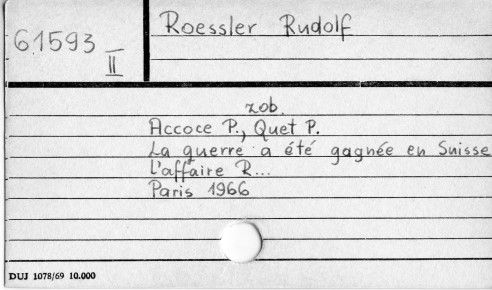 Roessler Rudolf
61593
II
zob.
Accoce P., Quet P.
La guerre a été gagnée en Suisse
L'affaire R...
Paris 1966
DUJ 1078/69 10.000